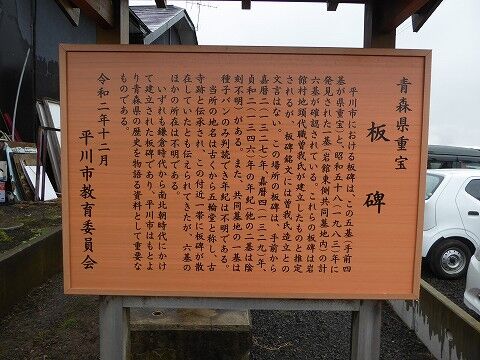 青森県重宝
板碑
平川市における板碑は、この五基(手前四
基が県重宝)と、昭和五十八(一九八三)年に
発見された一基(岩館東側共同墓地内)の計
六基が確認されている。これらの板碑は岩
館村地頭代職曽我氏が建立したものと推定
されるが、板碑銘文には曽我氏造立との
文言はない。この場所の板碑は、手前から
嘉暦二(一三二七)年、嘉暦四(一三二九)年、
貞和二(一三四六)年の年紀(他の二基は陰
刻不明)がある。また、共同墓地の一基は
種子バンのみ判読でき年紀は不明である。
当所の地名は古くから五輪堂と称し、古
寺跡と伝承され、この付近一帯に板碑が散
在していたとも伝えられてきたが、六基の
ほかの所在は不明である。
いずれも鎌倉時代から南北朝時代にかけ
て建立された板碑であり、平川市はもとよ
り青森県の歴史を物語る資料として重要な
ものである。
令和二年十二月
平川市教育委員会